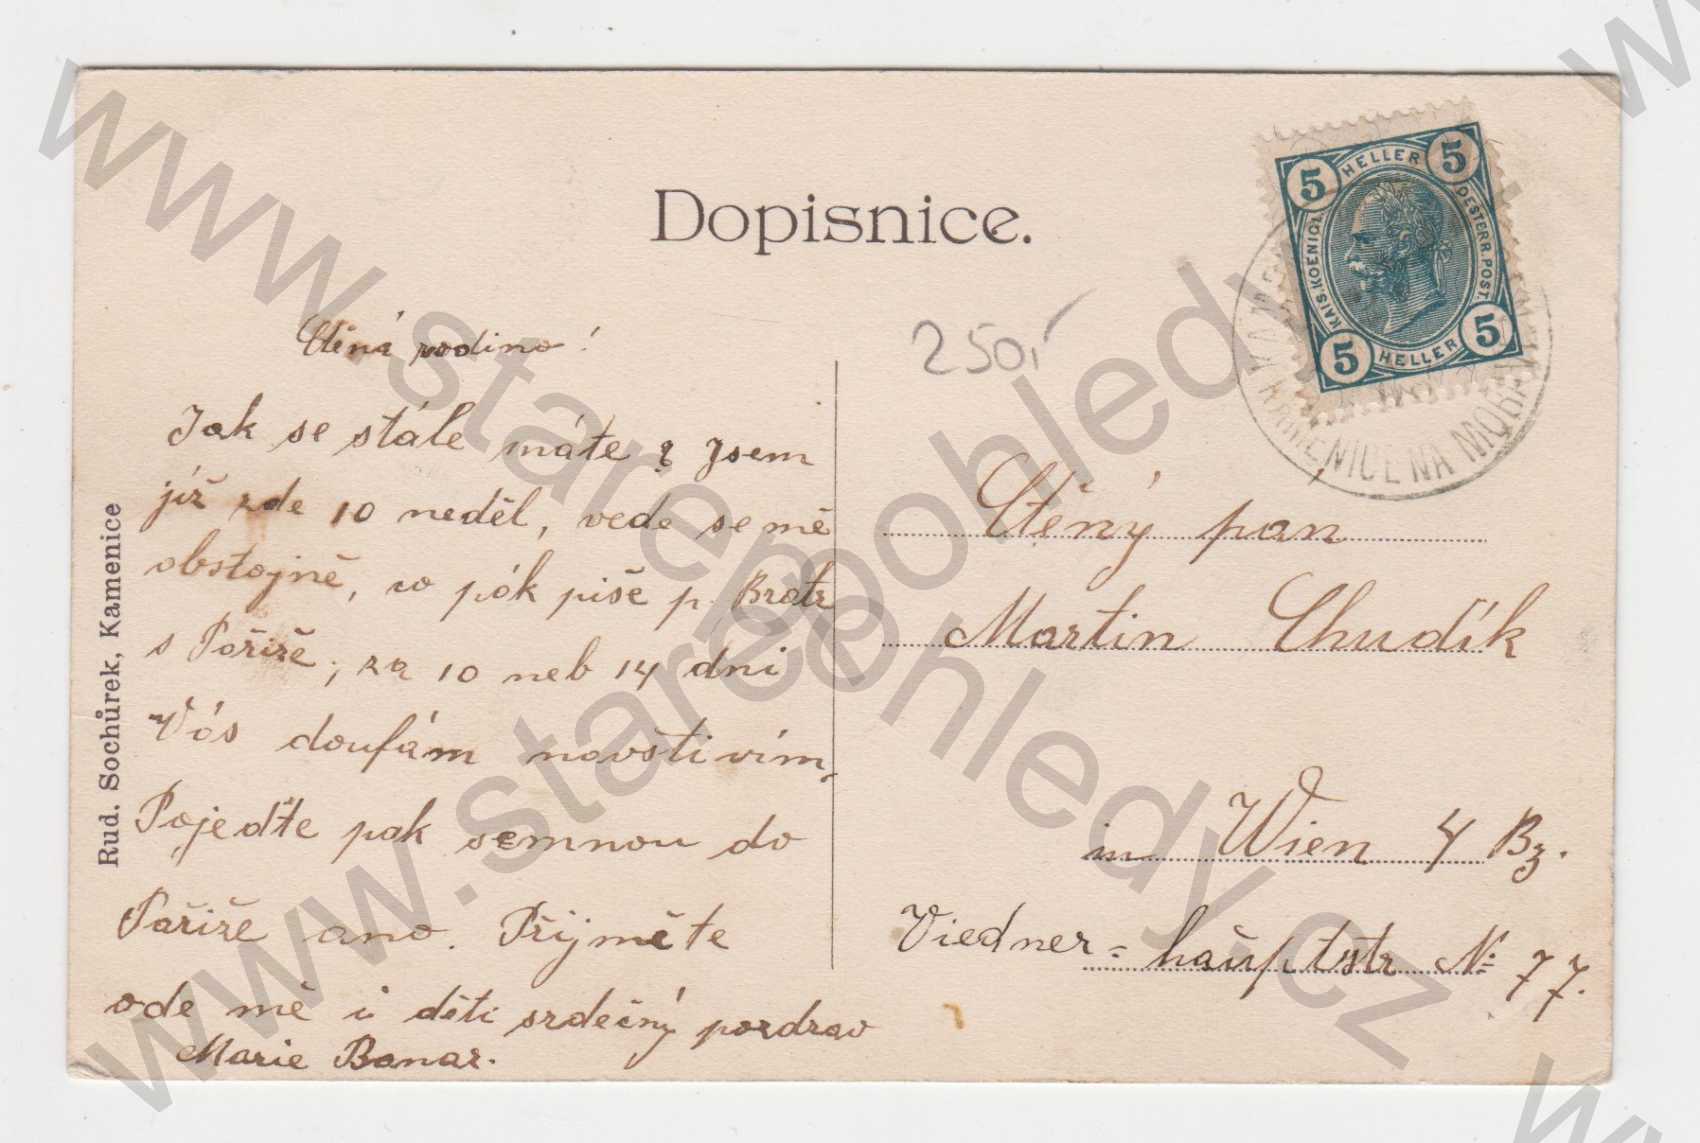 Dopisnice.
Ctěná rodino!
Jak se stále máte? Jsem
již zde 10 neděl, vede se mě
obstojně, co pák piše p. Bratr
s Pařiže, za 10 neb 14 dni
Vás doufám navštivím,
Pojeďte pak semnou do
Pařiže ano. Přijměte
ode mě i děti srdečný pozdrav
Marie Banar.
Rud. Sochůrek, Kamenice
250,-
5 HELLER 5
KAIS. KOENIGL.
OESTERR. POST.
5 HELLER 5
KAMENICE NA MORAVĚ
Ctěný pan
Martin Chudík
in Wien 4 Bz.
Viedner= haŭptstr № 77.
www.starepohledy.cz
www.starepohledy.cz